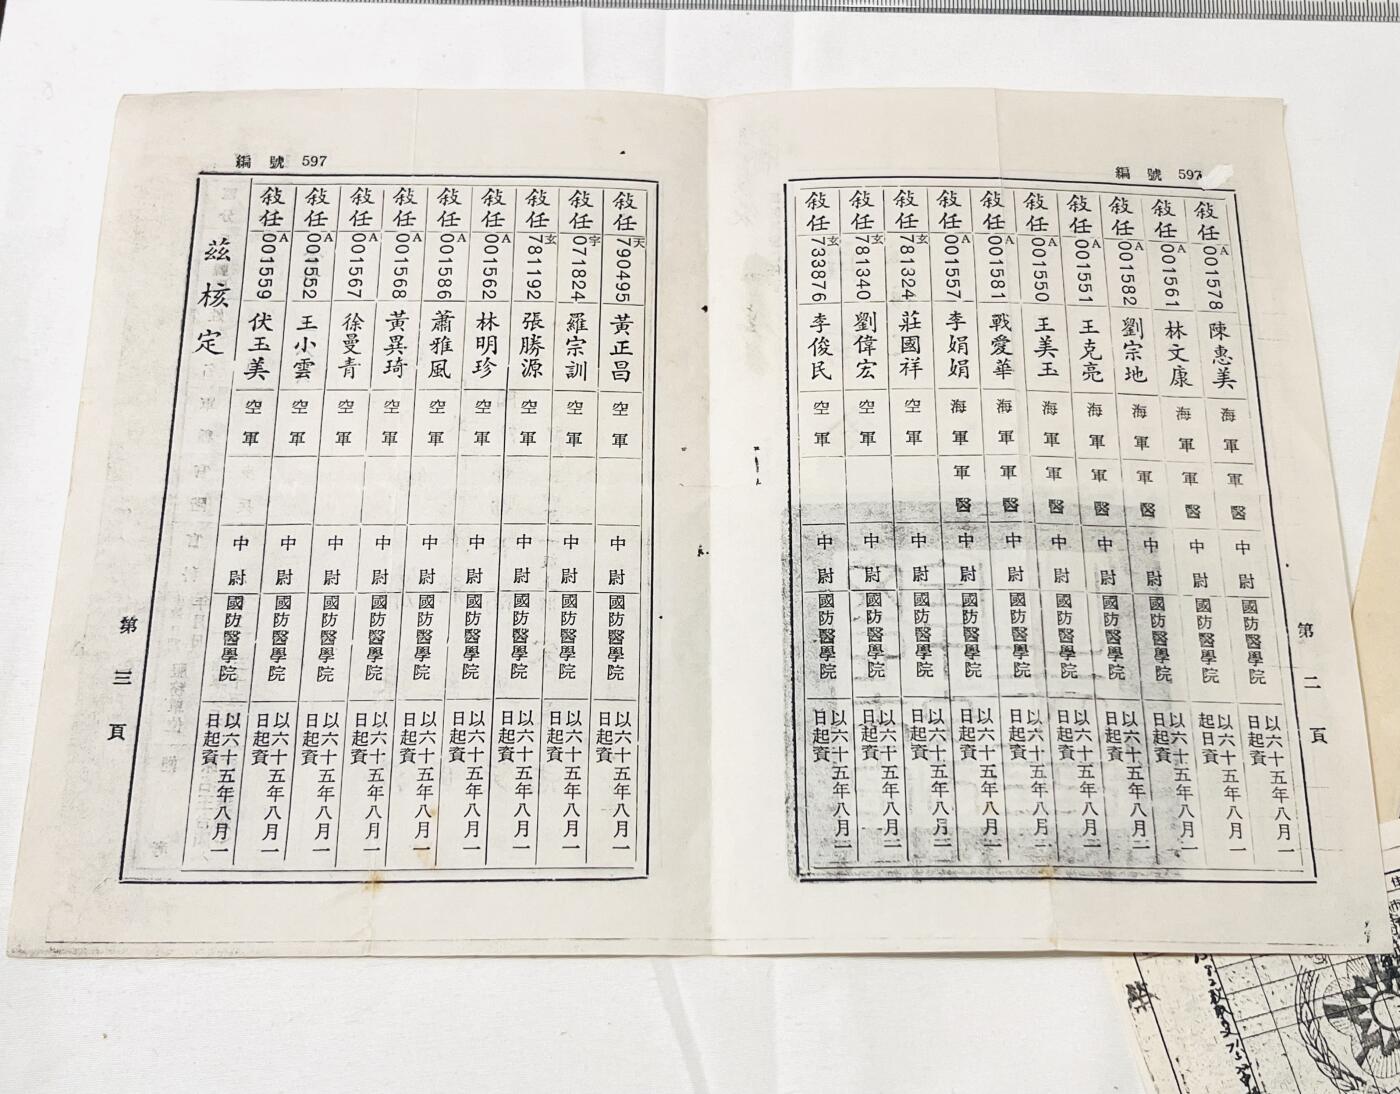 編號 597
敍任 A001578 陳惠美 海軍 軍醫 中尉 國防醫學院 以六十五年八月一日起資
敍任 A001561 林文康 海軍 軍醫 中尉 國防醫學院 以六十五年八月一起日資
敍任 A001582 劉宗地 海軍 軍醫 中尉 國防醫學院 以六十五年八月一日起資
敍任 A001551 王克亮 海軍 軍醫 中尉 國防醫學院 以六十五年八月一日起資
敍任 A001550 王美玉 海軍 軍醫 中尉 國防醫學院 以六十五年八月一日起資
敍任 A001581 戰愛華 海軍 軍醫 中尉 國防醫學院 以六十五年八月一日起資
敍任 A001557 李娟娟 海軍 軍醫 中尉 國防醫學院 以六十五年八月一日起資
敍任 玄781324 莊國祥 空軍 中尉 國防醫學院 以六十五年八月一日起資
敍任 玄781340 劉偉宏 空軍 中尉 國防醫學院 以六十五年八月一日起資
敍任 玄733876 李俊民 空軍 中尉 國防醫學院 以六十五年八月一日起資
第二頁
編號 597
敍任 天790495 黃正昌 空軍 中尉 國防醫學院 以六十五年八月一日起資
敍任 宇071824 羅宗訓 空軍 中尉 國防醫學院 以六十五年八月一日起資
敍任 玄781192 張勝源 空軍 中尉 國防醫學院 以六十五年八月一日起資
敍任 A001562 林明珍 空軍 中尉 國防醫學院 以六十五年八月一日起資
敍任 A001586 蕭雅風 空軍 中尉 國防醫學院 以六十五年八月一日起資
敍任 A001568 黃異琦 空軍 中尉 國防醫學院 以六十五年八月一日起資
敍任 A001567 徐曼青 空軍 中尉 國防醫學院 以六十五年八月一日起資
敍任 A001552 王小雲 空軍 中尉 國防醫學院 以六十五年八月一日起資
敍任 A001559 伏玉美 空軍 中尉 國防醫學院 以六十五年八月一日起資
茲核定
第三頁